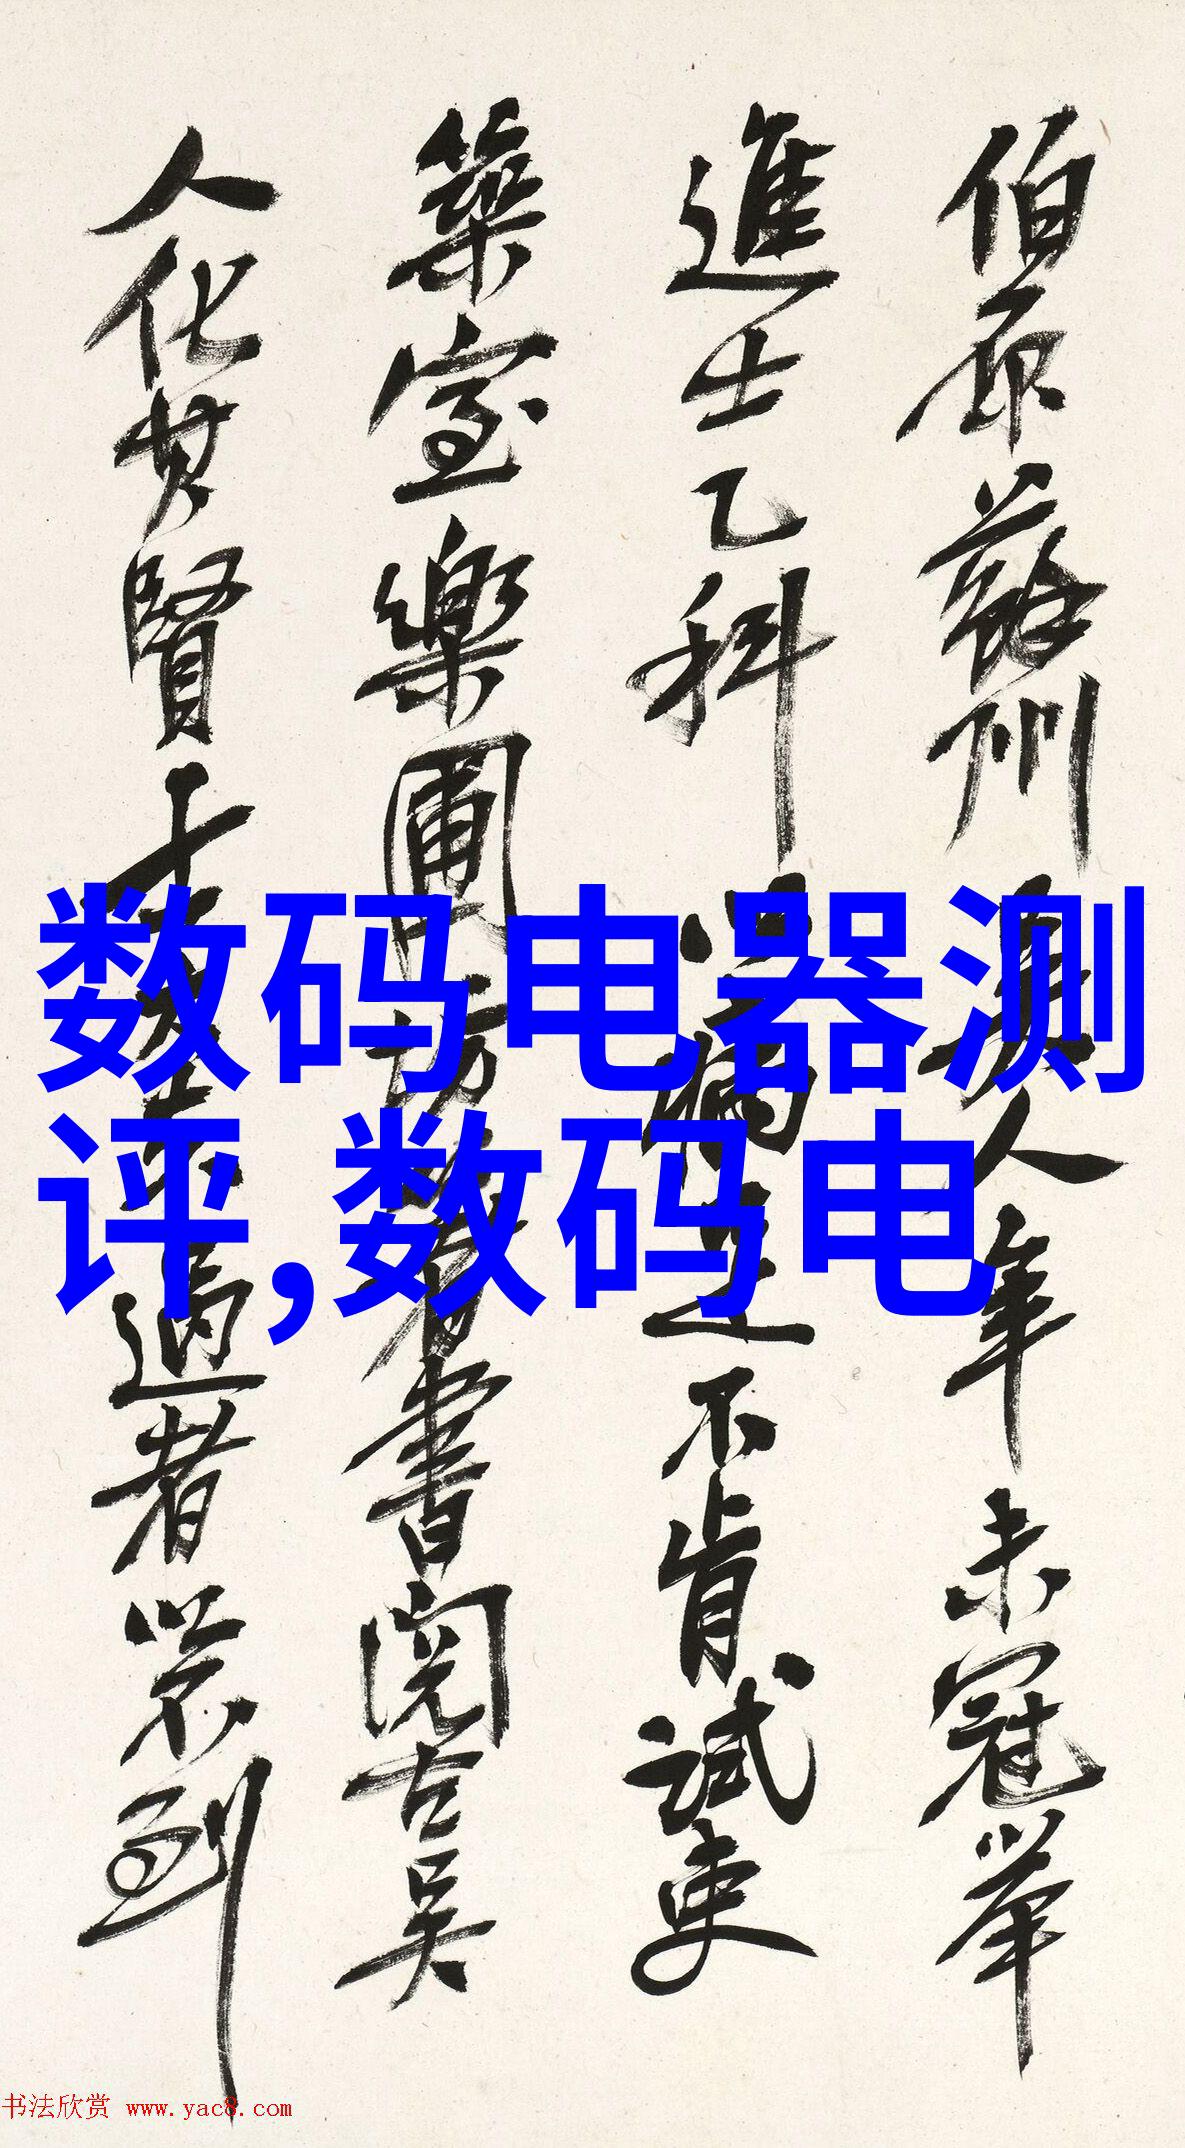 伯原蘇州吳人年未冠舉
進士乙科以病足不肯試吏
築室樂圃坊著書閱古吳
人化其賢士大夫過者以不到
数码电器测
评,数码电
书法欣赏 www.yac8.com